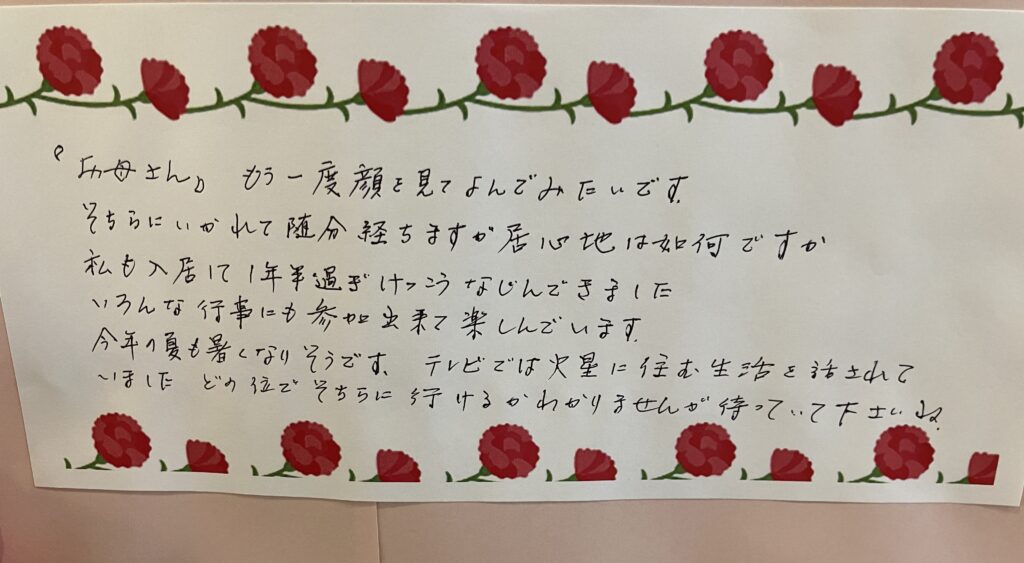 『お母さん』 もう一度顔を見てよんでみたいです。
そちらにいかれて随分経ちますが居心地は如何ですか
私も入居して1年半過ぎけっこうなじんできました
いろんな行事にも参加出来て楽しんでいます。
今年の夏も暑くなりそうです。 テレビでは火星に住む生活を話されて
いました どの位でそちらに行けるかわかりませんが待っていて下さいね。